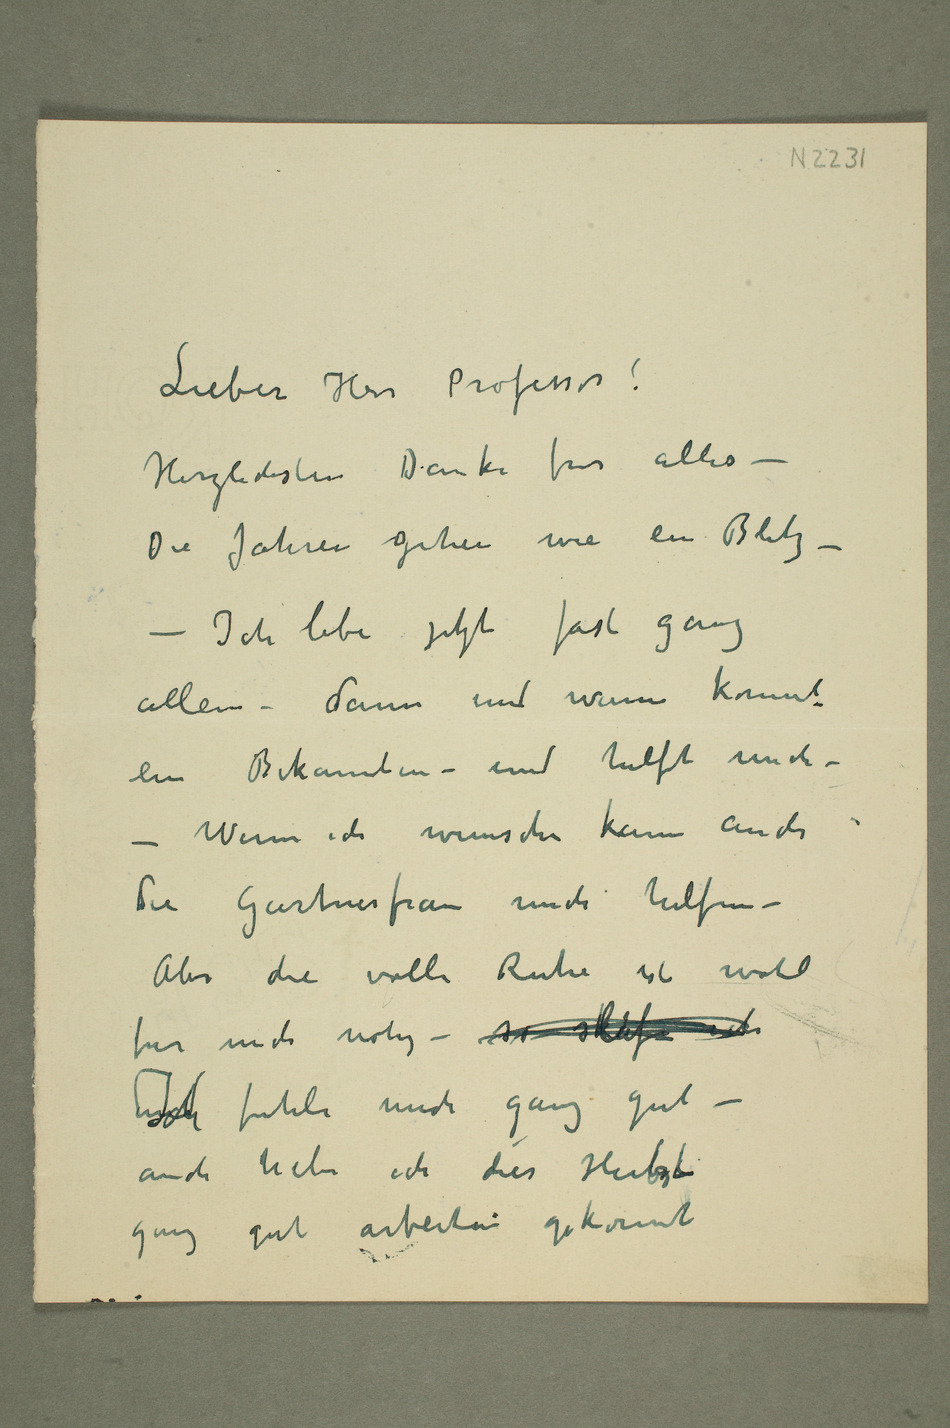 N2231
Lieber Herr Professor!
Herzlichsten Danke fur alles —
Die Jahren gehen wie ein Blitz —
— Ich lebe jetzt fast ganz
allein – dann und wann kommt
ein Bekannten – und hilft mich –
— Wenn ich wunsche kann auch
die Gartnerfrau mich helfen –
Aber die volle Ruhe ist wohl
fur mich notig – so schlafe ich
Ich fuhle mich ganz gut –
auch habe ich dies Herbst
ganz gut arbeiten gekonnt